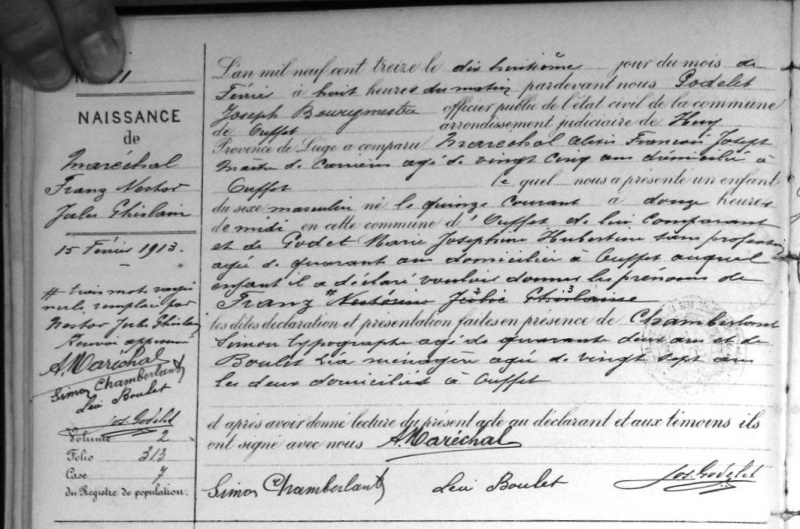 N° 11
NAISSANCE
de
Maréchal
Franz Nestor
Jules Ghislain
15 Février 1913.
# trois mots rayés
nuls, remplacés par
Nestor Jules Ghislain
Renvoi approuvé
A. Maréchal
Simon Chamberland
Léa Boulet
Jos. Godelet
Volume 2
Folio 313
Case 7
du Registre de population.
L'an mil neuf cent treize le dix huitième jour du mois de
Février à huit heures du matin pardevant nous Godelet
Joseph Bourgmestre officier public de l'état civil de la commune
de Ouffet arrondissement judiciaire de Huy
Province de Liège a comparu Maréchal Alexis François Joseph
Maître de Carrières âgé de vingt cinq ans domicilié à
Ouffet le quel nous a présenté un enfant
du sexe masculin né le quinze courant à douze heures
de midi en cette commune d'Ouffet de lui comparant
et de Godet Marie Joséphine Hubertine sans profession
agée de quarante ans domiciliée à Ouffet auquel
enfant il a déclaré vouloir donner les prénoms de
Franz # Nestorine Julie Ghislaine
les dites déclaration et présentation faites en présence de Chamberland
Simon typographe agé de quarante deux ans et de
Boulet Léa ménagère agée de vingt sept ans
les deux domiciliés à Ouffet
et après avoir donné lecture du présent acte au déclarant et aux témoins ils
ont signé avec nous A. Maréchal
Simon Chamberland Léa Boulet Jos. Godelet